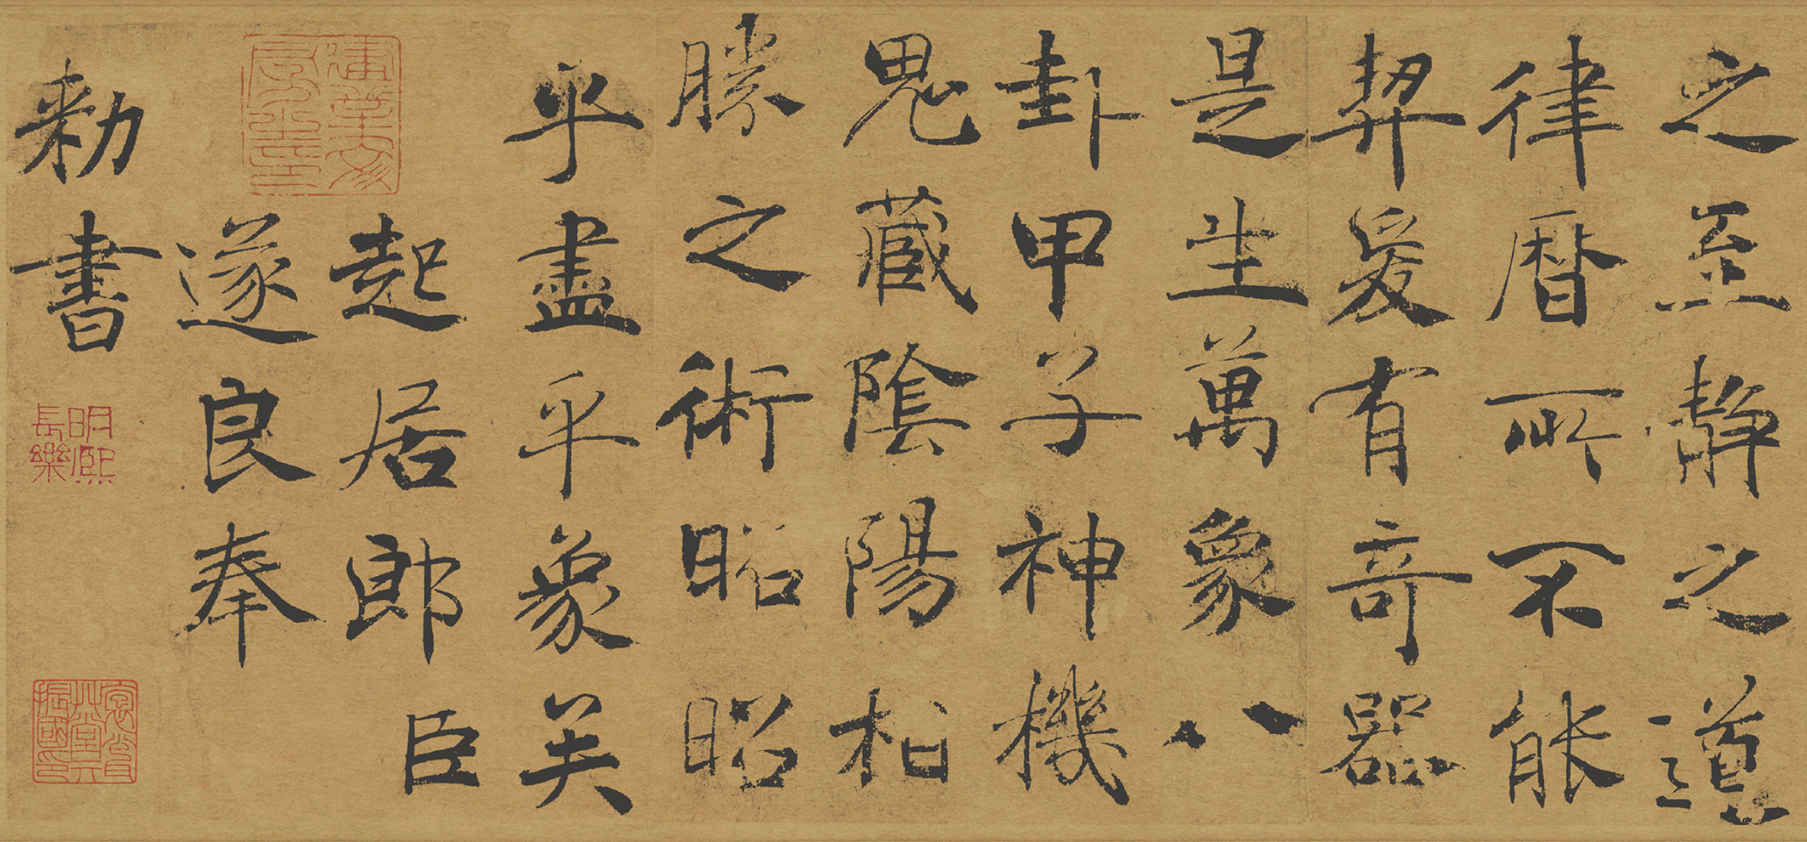 之至靜之道
律曆所不能
契爰有奇器
是生萬象八
卦甲子神機
鬼藏陰陽相
勝之術昭昭
乎盡乎象矣
起居郎臣
遂良奉
勅書
建業文房之印
明熙長樂